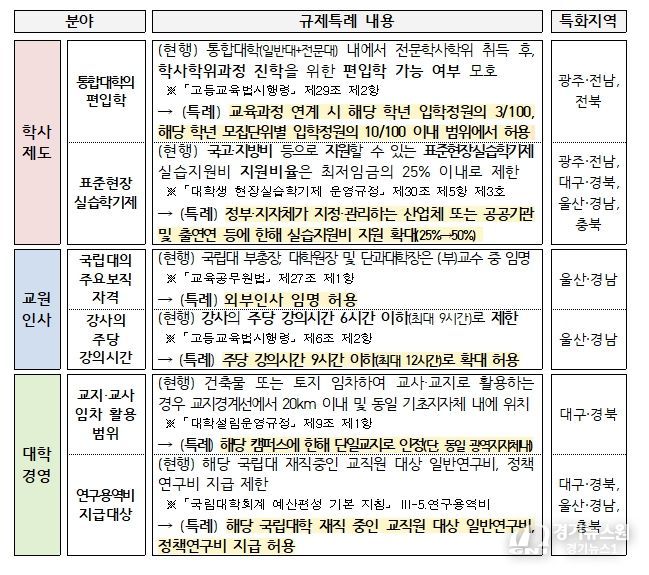 분야 규제특례 내용 특화지역
학사
제도
통합대학의
편입학
(현행) 통합대학(일반대+전문대) 내에서 전문학사학위 취득 후,
학사학위과정 진학을 위한 편입학 가능 여부 모호
※ 「고등교육법시행령」 제29조 제2항
→ (특례) 교육과정 연계 시 해당 학년 입학정원의 3/100,
해당 학년 모집단위별 입학정원의 10/100 이내 범위에서 허용
광주·전남,
전북
표준현장
실습학기제
(현행) 국고·지방비 등으로 지원할 수 있는 표준현장실습학기제
실습지원비 지원비율은 최저임금의 25% 이내로 제한
※ 「대학생 현장실습학기제 운영규정」 제30조 제5항 제3호
→ (특례) 정부·지자체가 지정·관리하는 산업체 또는 공공기관
및 출연연 등에 한해 실습지원비 지원 확대(25%→50%)
광주·전남,
대구·경북,
울산·경남,
충북
교원
인사
국립대의
주요보직
자격
(현행) 국립대 부총장, 대학원장 및 단과대학장은 (부)교수 중 임명
※ 「교육공무원법」 제27조 제1항
→ (특례) 외부인사 임명 허용
울산·경남
강사의
주당
강의시간
(현행) 강사의 주당 강의시간 6시간 이하(최대 9시간)로 제한
※ 「고등교육법시행령」 제6조 제2항
→ (특례) 주당 강의시간 9시간 이하(최대 12시간)로 확대 허용
울산·경남
대학
경영
교지·교사
임차 활용
범위
(현행) 건축물 또는 토지 임차하여 교사·교지로 활용하는
경우 교지경계선에서 20km 이내 및 동일 기초지자체 내에 위치
※ 「대학설립운영규정」 제9조 제1항
→ (특례) 해당 캠퍼스에 한해 단일교지로 인정(단, 동일 광역지자체내)
대구·경북
연구용역비
지급대상
(현행) 해당 국립대 재직중인 교직원 대상 일반연구비, 정책
연구비 지급 제한
※ 「국립대학회계 예산편성 기본 지침」 III-5.연구용역비
→ (특례) 해당 국립대학 재직 중인 교직원 대상 일반연구비,
정책연구비 지급 허용
대구·경북,
울산·경남,
충북
경기뉴스원
경기뉴스1